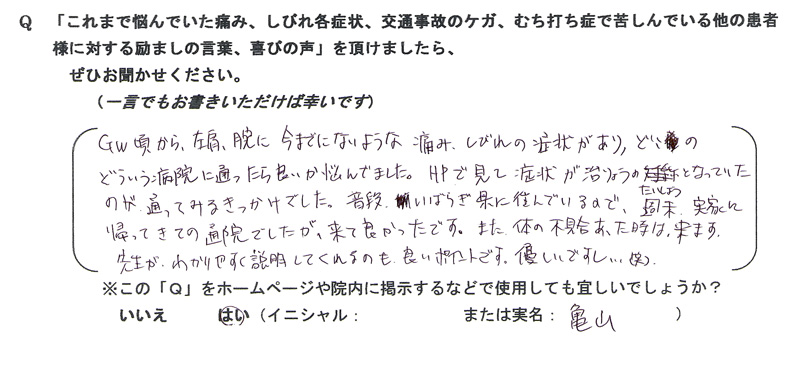 Q 「これまで悩んでいた痛み、しびれ各症状、交通事故のケガ、むち打ち症で苦しんでいる他の患者
様に対する励ましの言葉、喜びの声」を頂けましたら、
ぜひお聞かせください。
（一言でもお書きいただけば幸いです）
GW頃から、左肩、腕に今までにないような痛み、しびれの症状があり、どこの
どういう病院に通ったら良いか悩んでました。HPで見て症状が治りょうのたいしょうとなっていた
のが、通ってみるきっかけでした。普段、いばらぎ県に住んでいるので、週末、実家に
帰ってきての通院でしたが、来て良かったです。また、体の不具合あった時は、来ます。
先生が、わかりやすく説明してくれるのも、良いポイントです。優しいですし…(笑)
※この「Q」をホームページや院内に掲示するなどで使用しても宜しいでしょうか？
いいえ はい（イニシャル： または実名：亀山 ）